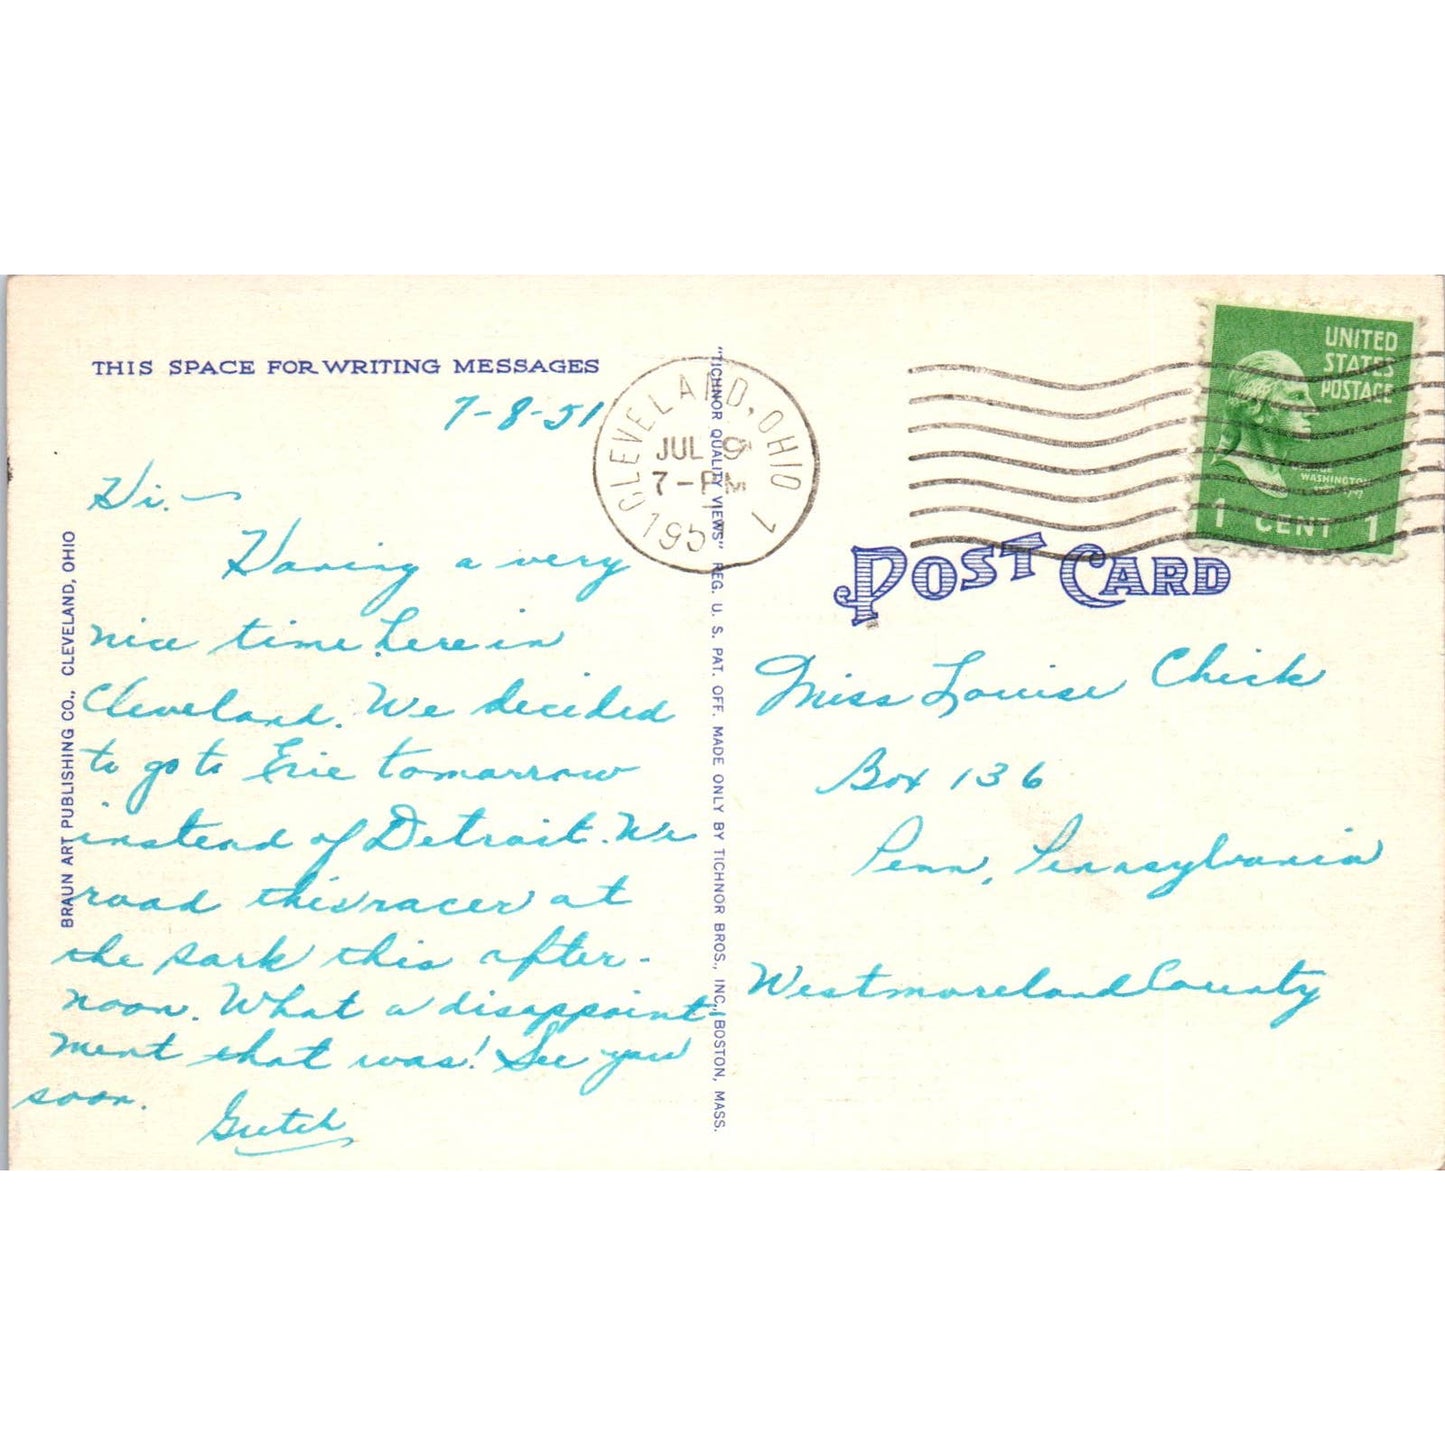 THIS SPACE FOR WRITING MESSAGES
7-8-51
Hi. —
Having a very
nice time here in
Cleveland. We decided
to go to Erie tomorrow
instead of Detroit. We
road this racer at
the park this after-
noon. What a disappoint-
ment that was! See you
soon.
Gutch
BRAUN ART PUBLISHING CO., CLEVELAND, OHIO
"TICHNOR QUALITY VIEWS" REG. U. S. PAT. OFF. MADE ONLY BY TICHNOR BROS., INC., BOSTON, MASS.
CLEVELAND, OHIO 1
JUL 9
7-PM
1951
UNITED
STATES
POSTAGE
WASHINGTON
1 CENT 1
POST CARD
Miss Louise Chick
Box 136
Penn, Pennsylvania
Westmoreland County